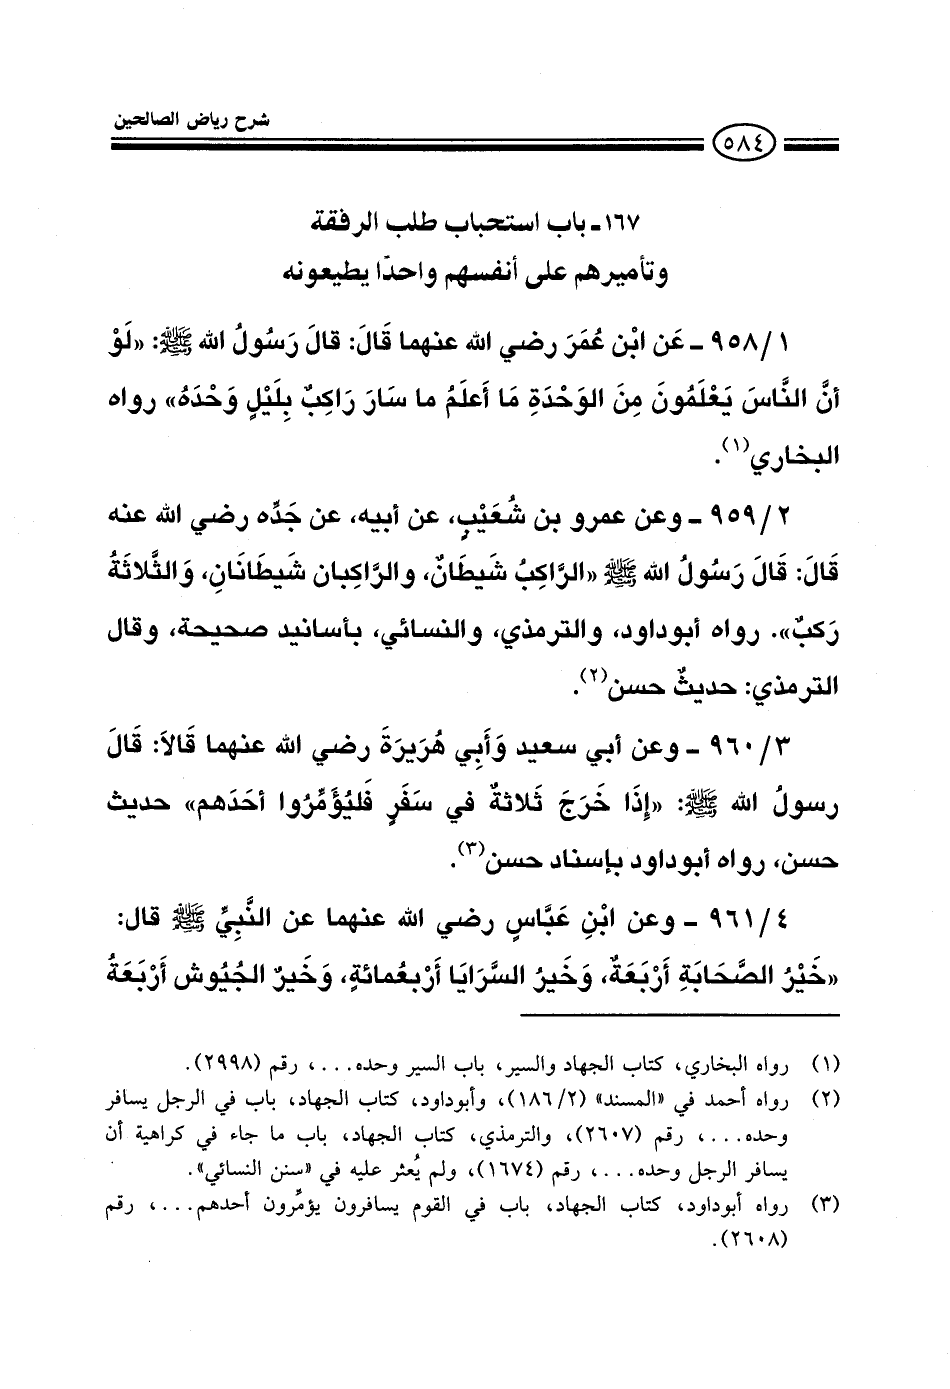 شرح رياض الصالحين
٥٨٤
١٦٧ـ باب استحباب طلب الرفقة
وتأميرهم على أنفسهم واحدًا يطيعونه
٩٥٨/١ ـ عَن ابْن عُمَرَ رضي الله عنهما قَالَ: قالَ رَسُولُ الله ﷺ: «لَوْ
أنَّ النَّاسَ يَعْلَمُونَ مِنَ الوَحْدَةِ مَا أَعلَمُ ما سَارَ رَاكِبٌ بِلَيْلٍ وَحْدَهُ» رواه
البخاري(١).
٩٥٩/٢ ـ وعن عمرو بن شُعَيْبٍ، عن أبيه، عن جَدِّه رضي الله عنه
قَالَ: قَالَ رَسُولُ الله ﷺ «الرَّاكِبُ شَيطَانٌ، والرَّاكِبان شَيطَانَانِ، وَالثَّلاثَةُ
رَكبٌ». رواه أبوداود، والترمذي، والنسائي، بأسانيد صحيحة، وقال
الترمذي: حديثٌ حسن(٢).
٩٦٠/٣ ـ وعن أبي سعيد وَأَبِي هُرَيرَةَ رضي الله عنهما قَالاَ: قَالَ
رسولُ الله ﷺ: «إِذَا خَرَجَ ثَلاثةٌ في سَفَرٍ فَليُؤَمِّرُوا أحَدَهم» حديث
حسن، رواه أبوداود بإسناد حسن(٣).
٩٦١/٤ ـ وعن ابْنِ عَبَّاسٍ رضي الله عنهما عن النَّبِيِّ ﷺ قال:
«خَيْرُ الصَّحَابَةِ أَرْبَعَةٌ، وَخَيرُ السَّرَايَا أَرْبعُمائةٍ، وَخَيرُ الجُيُوش أَرْبَعَةُ
(١) رواه البخاري، كتاب الجهاد والسير، باب السير وحده...، رقم (٢٩٩٨).
(٢) رواه أحمد في «المسند» (١٨٦/٢)، وأبوداود، كتاب الجهاد، باب في الرجل يسافر
وحده...، رقم (٢٦٠٧)، والترمذي، كتاب الجهاد، باب ما جاء في كراهية أن
يسافر الرجل وحده...، رقم (١٦٧٤)، ولم يُعثر عليه في «سنن النسائي».
(٣) رواه أبوداود، كتاب الجهاد، باب في القوم يسافرون يؤمِّرون أحدهم...، رقم
(٢٦٠٨).